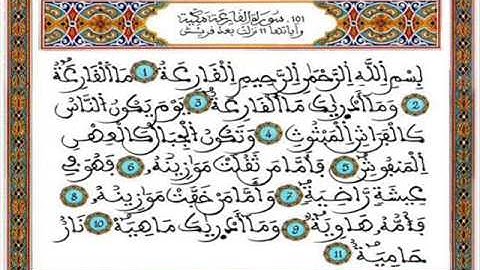 101. سورة القارعة مكية
وآياتها 11 نزلت بعد قريش
بِسْمِ اللَّهِ الرَّحْمَٰنِ الرَّحِيمِ الْقَارِعَةُ 1 مَا الْقَارِعَةُ
2 وَمَا أَدْرِيكَ مَا الْقَارِعَةُ 3 يَوْمَ يَكُونُ النَّاسُ
كَالْفَرَاشِ الْمَبْثُوثِ 4 وَتَكُونُ الْجِبَالُ كَالْعِهْنِ
الْمَنفُوشِ 5 فَأَمَّا مَن ثَقُلَتْ مَوَازِينُهُ 6 فَهُوَ فِي
عِيشَةٍ رَّاضِيَةٍ 7 وَأَمَّا مَنْ خَفَّتْ مَوَازِينُهُ 8
فَأُمُّهُ هَاوِيَةٌ 9 وَمَا أَدْرِيكَ مَاهِيَهْ 10 نَارٌ
حَامِيَةٌ 11